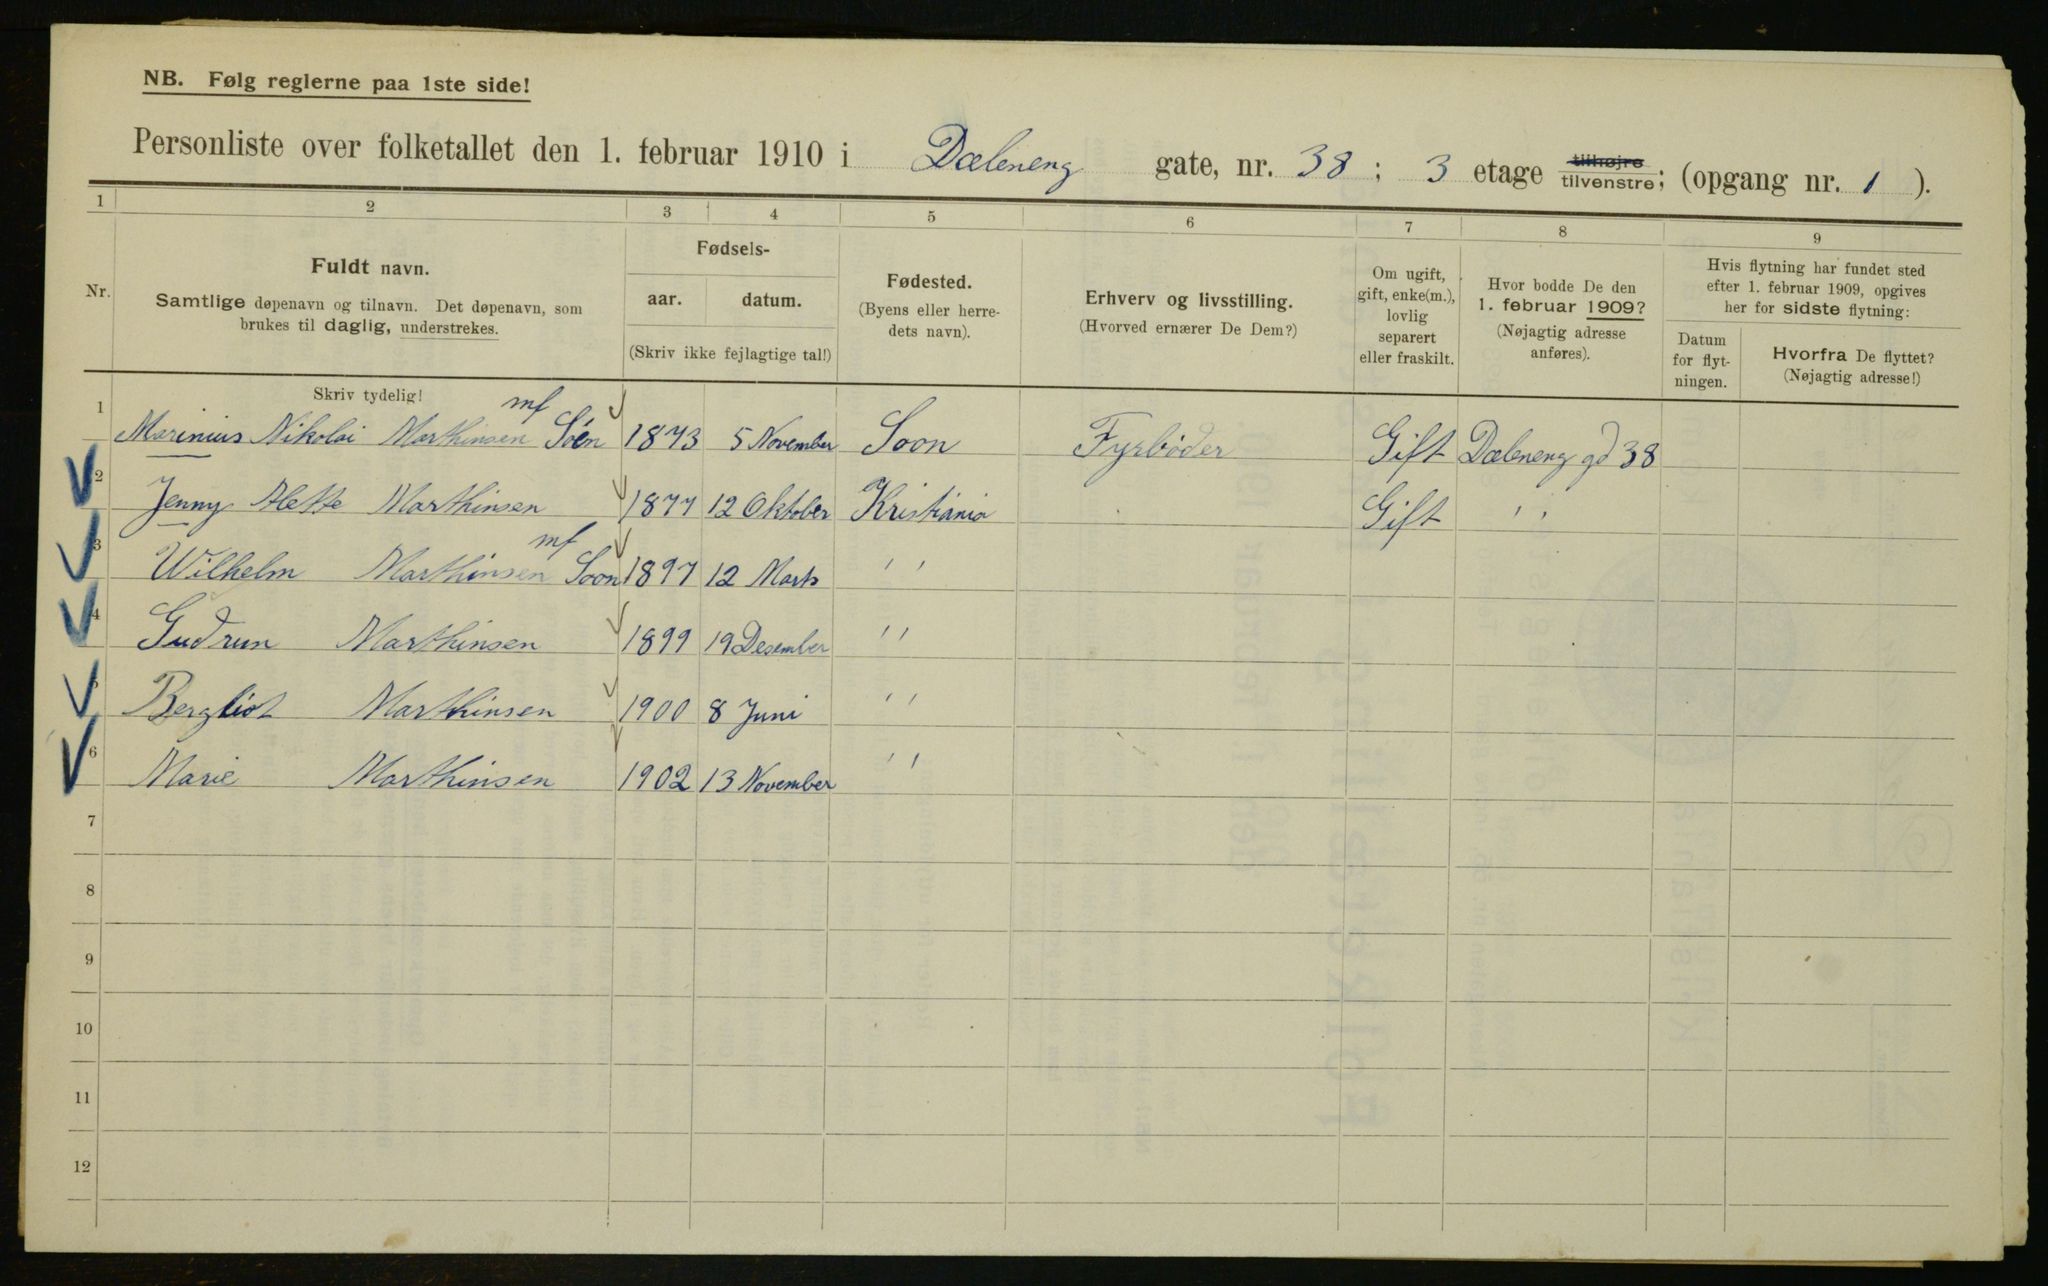 NB. Følg reglerne paa 1ste side!
Personliste over folketallet den 1. februar 1910 i Dæleneng gate, nr. 38 ; 3 etage tilhøjre tilvenstre; (opgang nr. 1 ).
1 2 3 4 5 6 7 8 9
Nr. Fuldt navn. Samtlige døpenavn og tilnavn. Det døpenavn, som brukes til daglig, understrekes.
Fødsels- aar. datum. (Skriv ikke fejlagtige tal!)
Fødested. (Byens eller herredets navn).
Erhverv og livsstilling. (Hvorved ernærer De Dem?)
Om ugift, gift, enke(m.), lovlig separert eller fraskilt.
Hvor bodde De den 1. februar 1909? (Nøjagtig adresse anføres).
Hvis flytning har fundet sted efter 1. februar 1909, opgives her for sidste flytning:
Datum for flytningen. Hvorfra De flyttet? (Nøjagtig adresse!)
Skriv tydelig!
mf
1 Marinius Nikolai Marthinsen Soen 1873 5 November Soon Fyrbøder Gift Dæleneng gd 38
2 Jenny Alette Marthinsen 1877 12 Oktober Kristiania Gift " "
mf
3 Wilhelm Marthinsen Soon 1897 12 Marts " "
4 Gudrun Marthinsen 1899 19 Desember " "
5 Bergliot Marthinsen 1900 8 Juni " "
6 Marie Marthinsen 1902 13 November " "
7
8
9
10
11
12